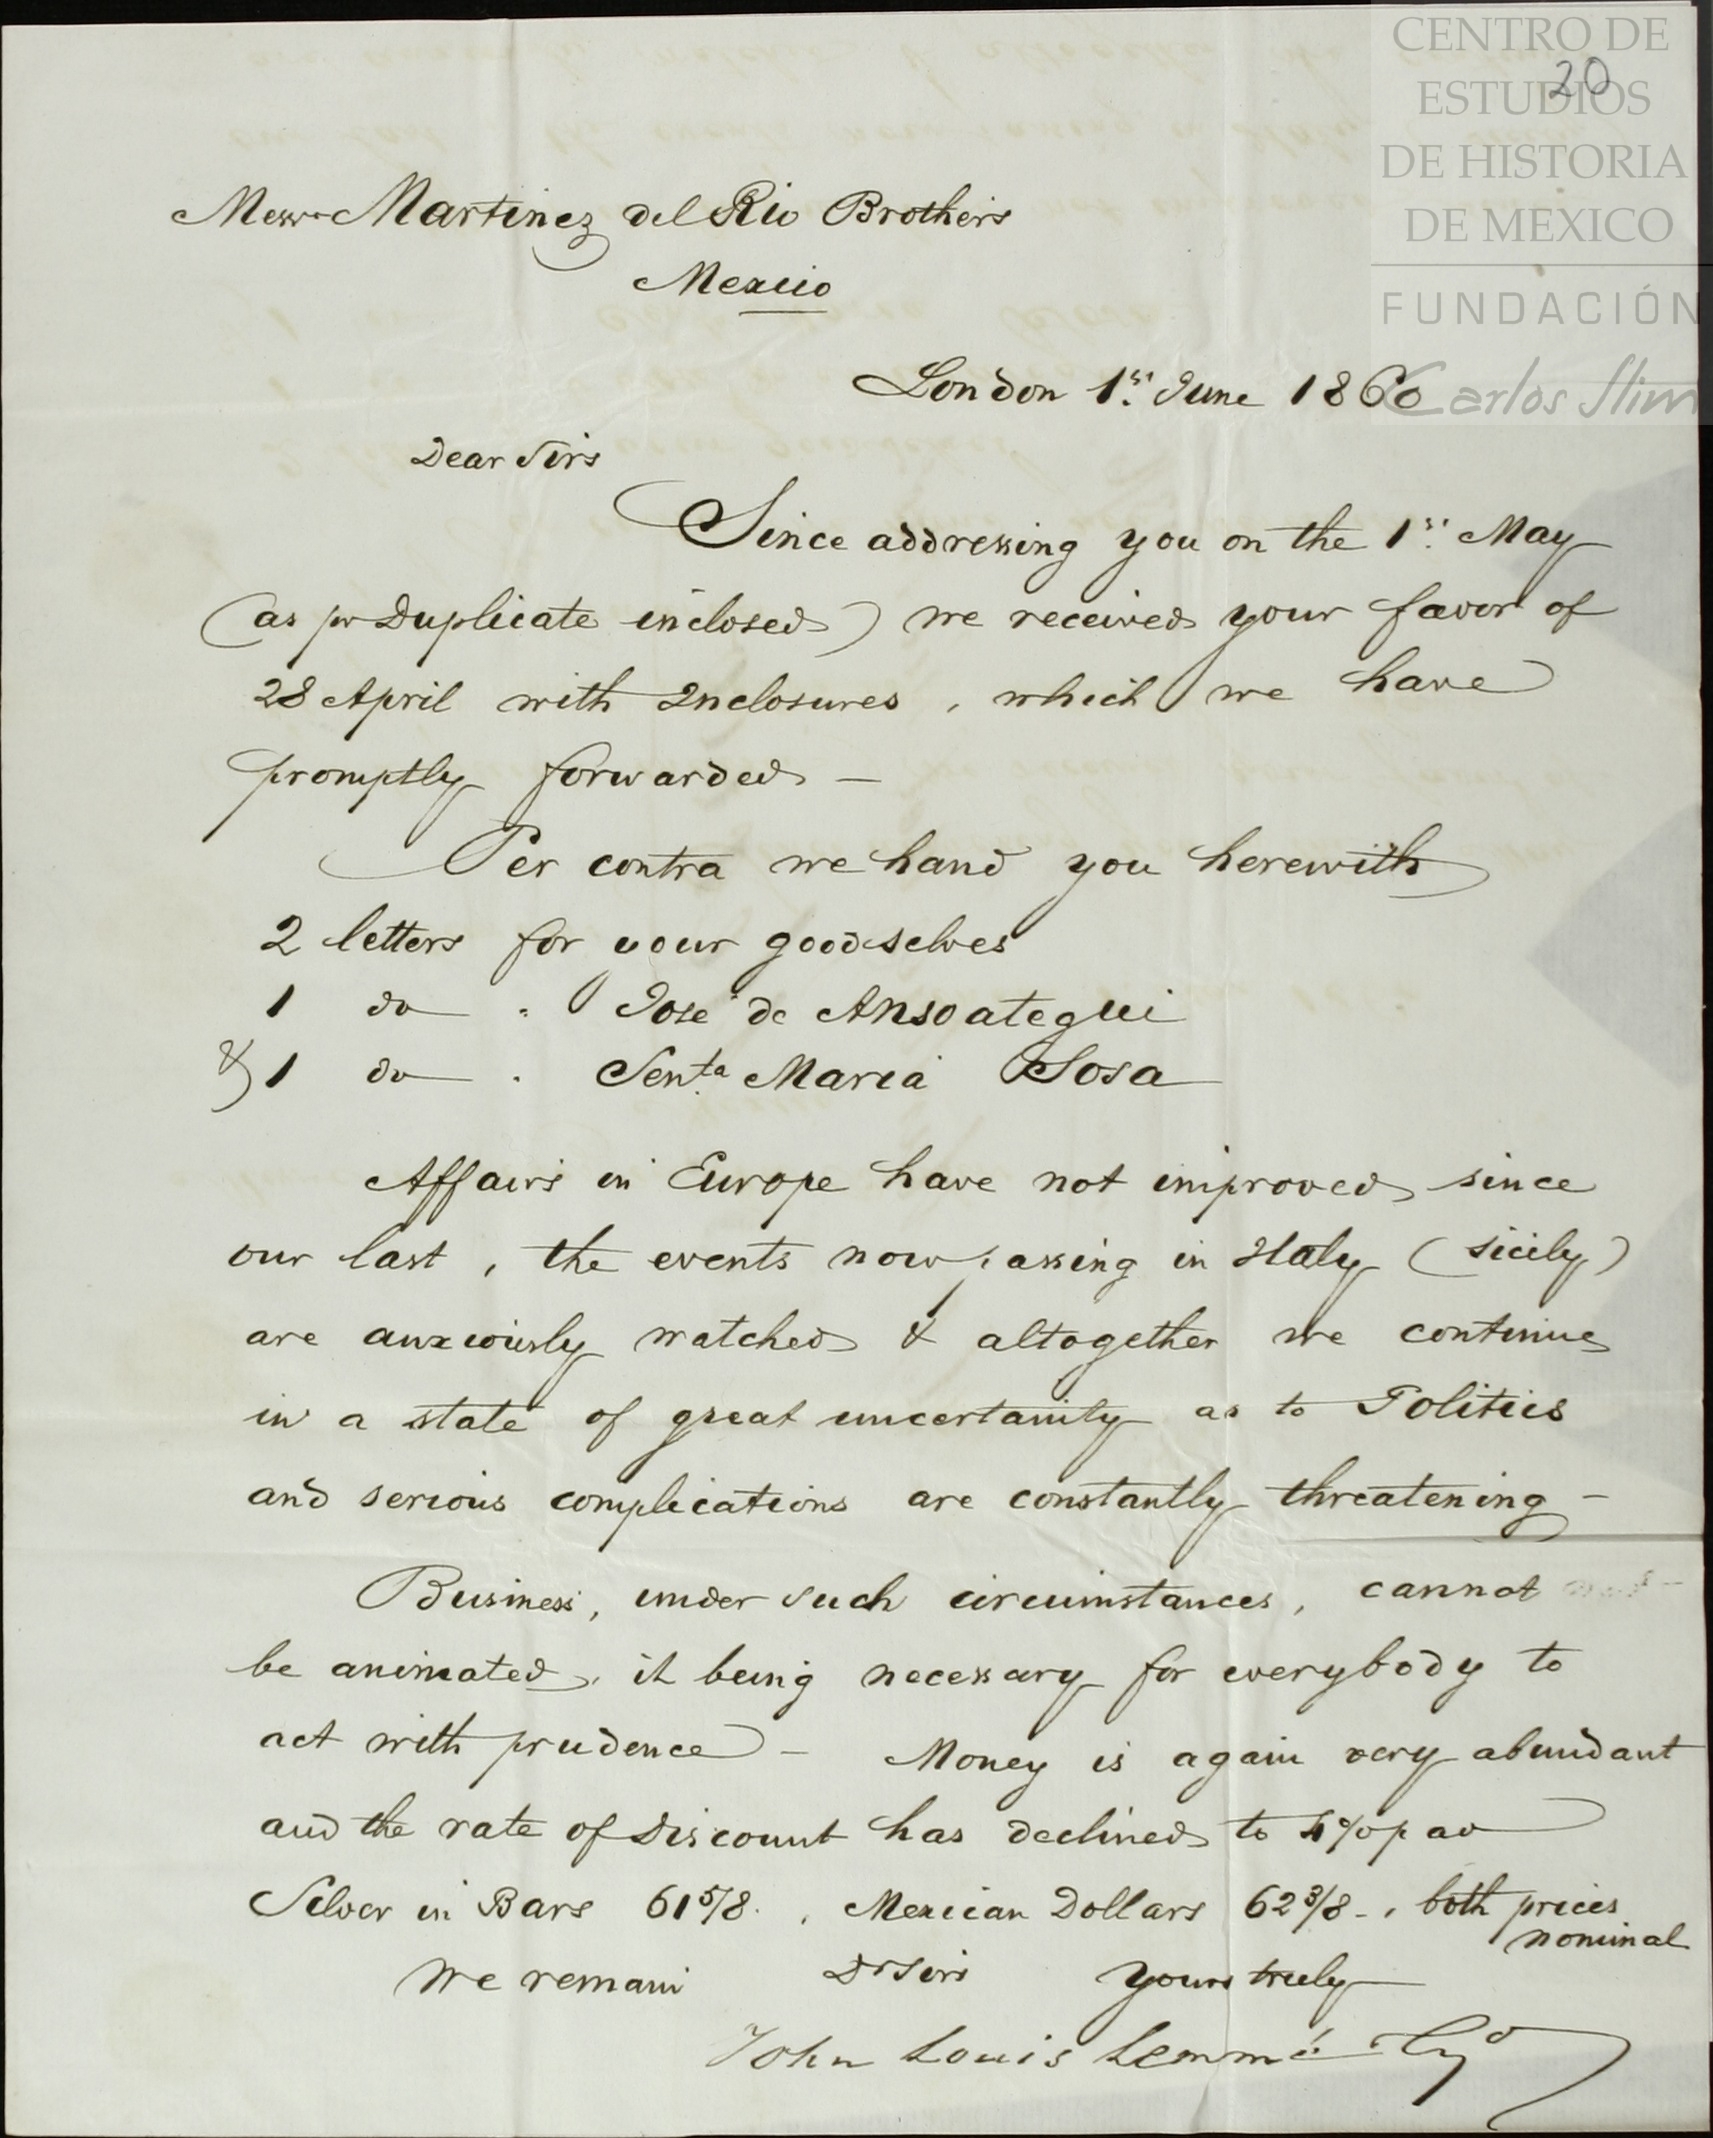 CENTRO DE
ESTUDIOS
DE HISTORIA
DE MEXICO
FUNDACIÓN
Carlos Slim
20
Messrs Martinez del Rio Brothers
Mexico
London 1st June 1860
Dear Sirs
Since addressing you on the 1st May
(as pr Duplicate inclosed) we received your favor of
28 April with Inclosures, which we have
promptly forwarded –
Per contra we hand you herewith
2 letters for your goodselves
1 do " José de Ansoategui
& 1 do " Senta Maria Sosa
Affairs in Europe have not improved since
our last, the events now passing in Italy (Sicily)
are anxiously watched & altogether we continue
in a state of great uncertainity as to Politics
and serious complications are constantly threatening –
Business, under such circumstances, cannot
be animated, it being necessary for everybody to
act with prudence – Money is again very abundant
and the rate of Discount has declined to 4% p ao
Silver in Bars 61 5/8. , Mexican Dollars 62 3/8 - , both prices
nominal
We remain Dr Sirs Yours truly
John Louis Lemmé & Co